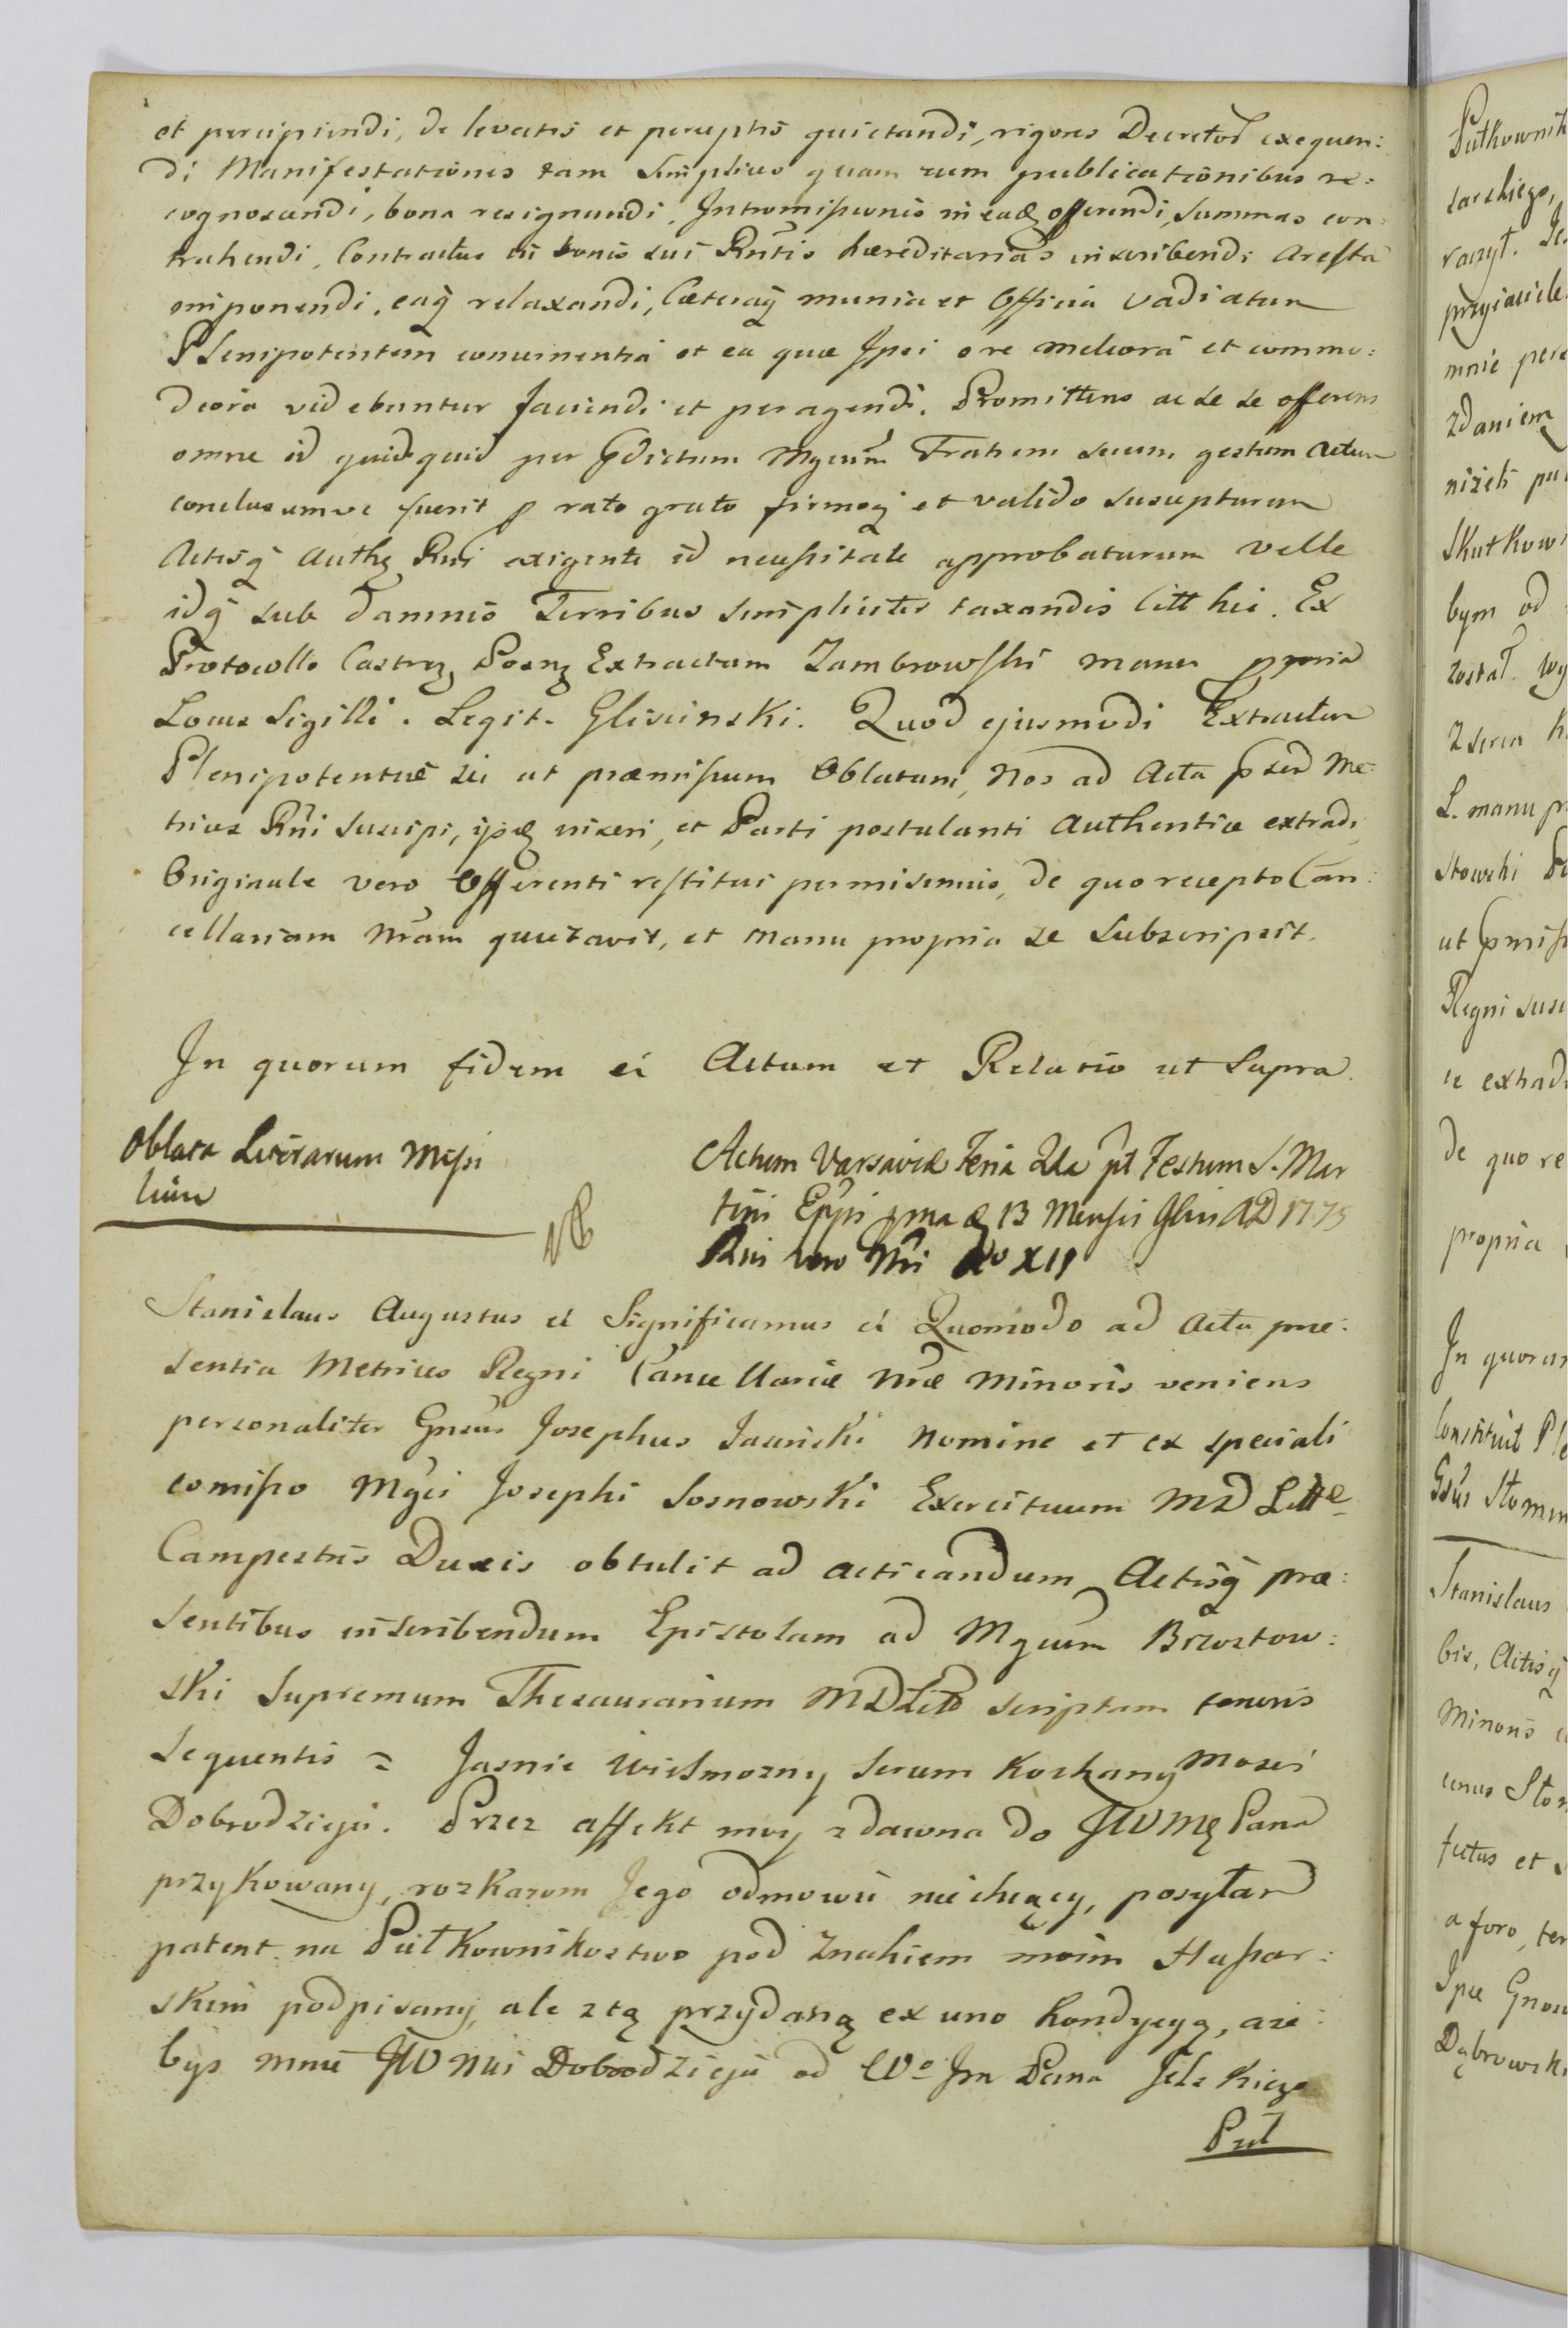 et percipiendi, de levatis et perceptis quietandi, rigores Decretor exequen:
di Manifestationes tam Simplices quam cum publicationibus re:
cognoscendi, bona resignandi, Intromissiones in eadz offerendi, Summas con:
trahendi, Contractus in bonis sui Rntis hæreditariis inscribendi Aresta
imponendi, eaqz relaxandi, Cæteraqz munia et Officia vadiatum
Plenipotentem concernentia et ea quæ Ipsi e re meliora et commo:
diora videbuntur faciendi et peragendi. Promittens ac se se offerens
omne id quidquid per Pdictum Mgcum Fratrem suum gestum actum
conclusumve fuerit p rato grato firmoqz et valido suscepturum
Actisqz Authz Rni exigente id necessitate approbaturum velle
idqz sub damnis Terribus simpliciter taxandis Citt hic. Ex
Protocollo Castrz Posnz Extractum Zambrowski manu ppria
Locus Sigilli. Legit. Gliscinski. Quod ejusmodi Extractum
Plenipotentiæ sic ut præmissum Oblatum, Nos ad Acta psed Me:
trices Rni suscipi, ijsdz inseri, et Parti postulanti Authentice extradi,
Originale vero Offerenti restitui permisimus, de quo recepto Can:
cellariam Nram quietavit, et manu propria se Subscripsit.
In quorum fidem ct Actum et Relatio ut Supra.
Oblata Literarum Missi
lium
NB
Actum Varsaviæ Feria 2da pt Festum S. Mar
tini Eppi pma dz 13 Mensis 9bris AD 1775
Rni vero Nri Ao XII
Stanislaus Augustus ct Significamus ct Quomodo ad Acta præ:
sentia Metrices Regni Cancellariæ Nræ Minoris veniens
personaliter Gnsus Josephus Jasinski nomine et ex speciali
comisso Mgci Josephi Sosnowski Exercituum MD Littæ
Campestris Ducis obtulit ad acticandum, Actisqz præ:
sentibus inscribendum Epistolam ad Mgcum Brzostow:
ski Supremum Thesaurarium MDLitt scriptam tenoris
Sequentis = Jasnie Wielmozny Sercem Kochany Mosci
Dobrodzieju. Przez affekt moy zdawna do JWMę Pana
przykowany, rozkazom Jego odmowić niechcący, posyłam
patent na Pułkownikostwo pod Znakiem moim Hussar:
skim podpisany, ale ztą przydaną ex uno kondycyą, aże:
bys mnie JWMci Dobrodzieju od Wo Jm Pana Jelskiego
Puł
Pułkownik
sarskiego,
raczył. Je
przyiaciele
mnie pere
zdaniem
niżeli pu
Skutkow
bym od
został. Wy
Z serca k
L. manu p
stowski P
ut pmiss
Regni susc
ce extradi
de quo re
propria
In quorum
Constituit Ple
Gsus Słomin
Stanislaus
bis, Actisqz
Minoris c
cenus Słom
tutus et
a foro, ter
Ipse Gnosu
Dąbrowski